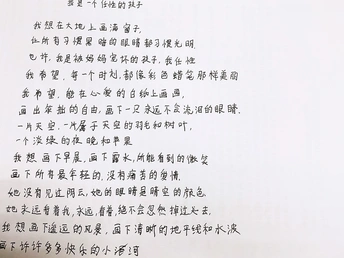 我是一个任性的孩子
我想在大地上画满窗子,
让所有习惯黑暗的眼睛都习惯光明.
也许,我是被妈妈宠坏的孩子,我任性
我希望,每一个时刻,都像彩色蜡笔那样美丽
我希望,能在心爱的白纸上画画,
画出笨拙的自由,画下一只永远不会流泪的眼睛.
一片天空,一片属于天空的羽毛和树叶,
一个淡绿的夜晚和苹果
我想画下早晨,画下露水,所能看到的微笑
画下所有最年轻的,没有痛苦的爱情,
她没有见过阴云,她的眼睛是晴空的颜色
她永远看着我,永远,看着,绝不会忽然掉过头去.
我想画下遥远的风景,画下清晰的地平线和水波
画下许许多多快乐的小河